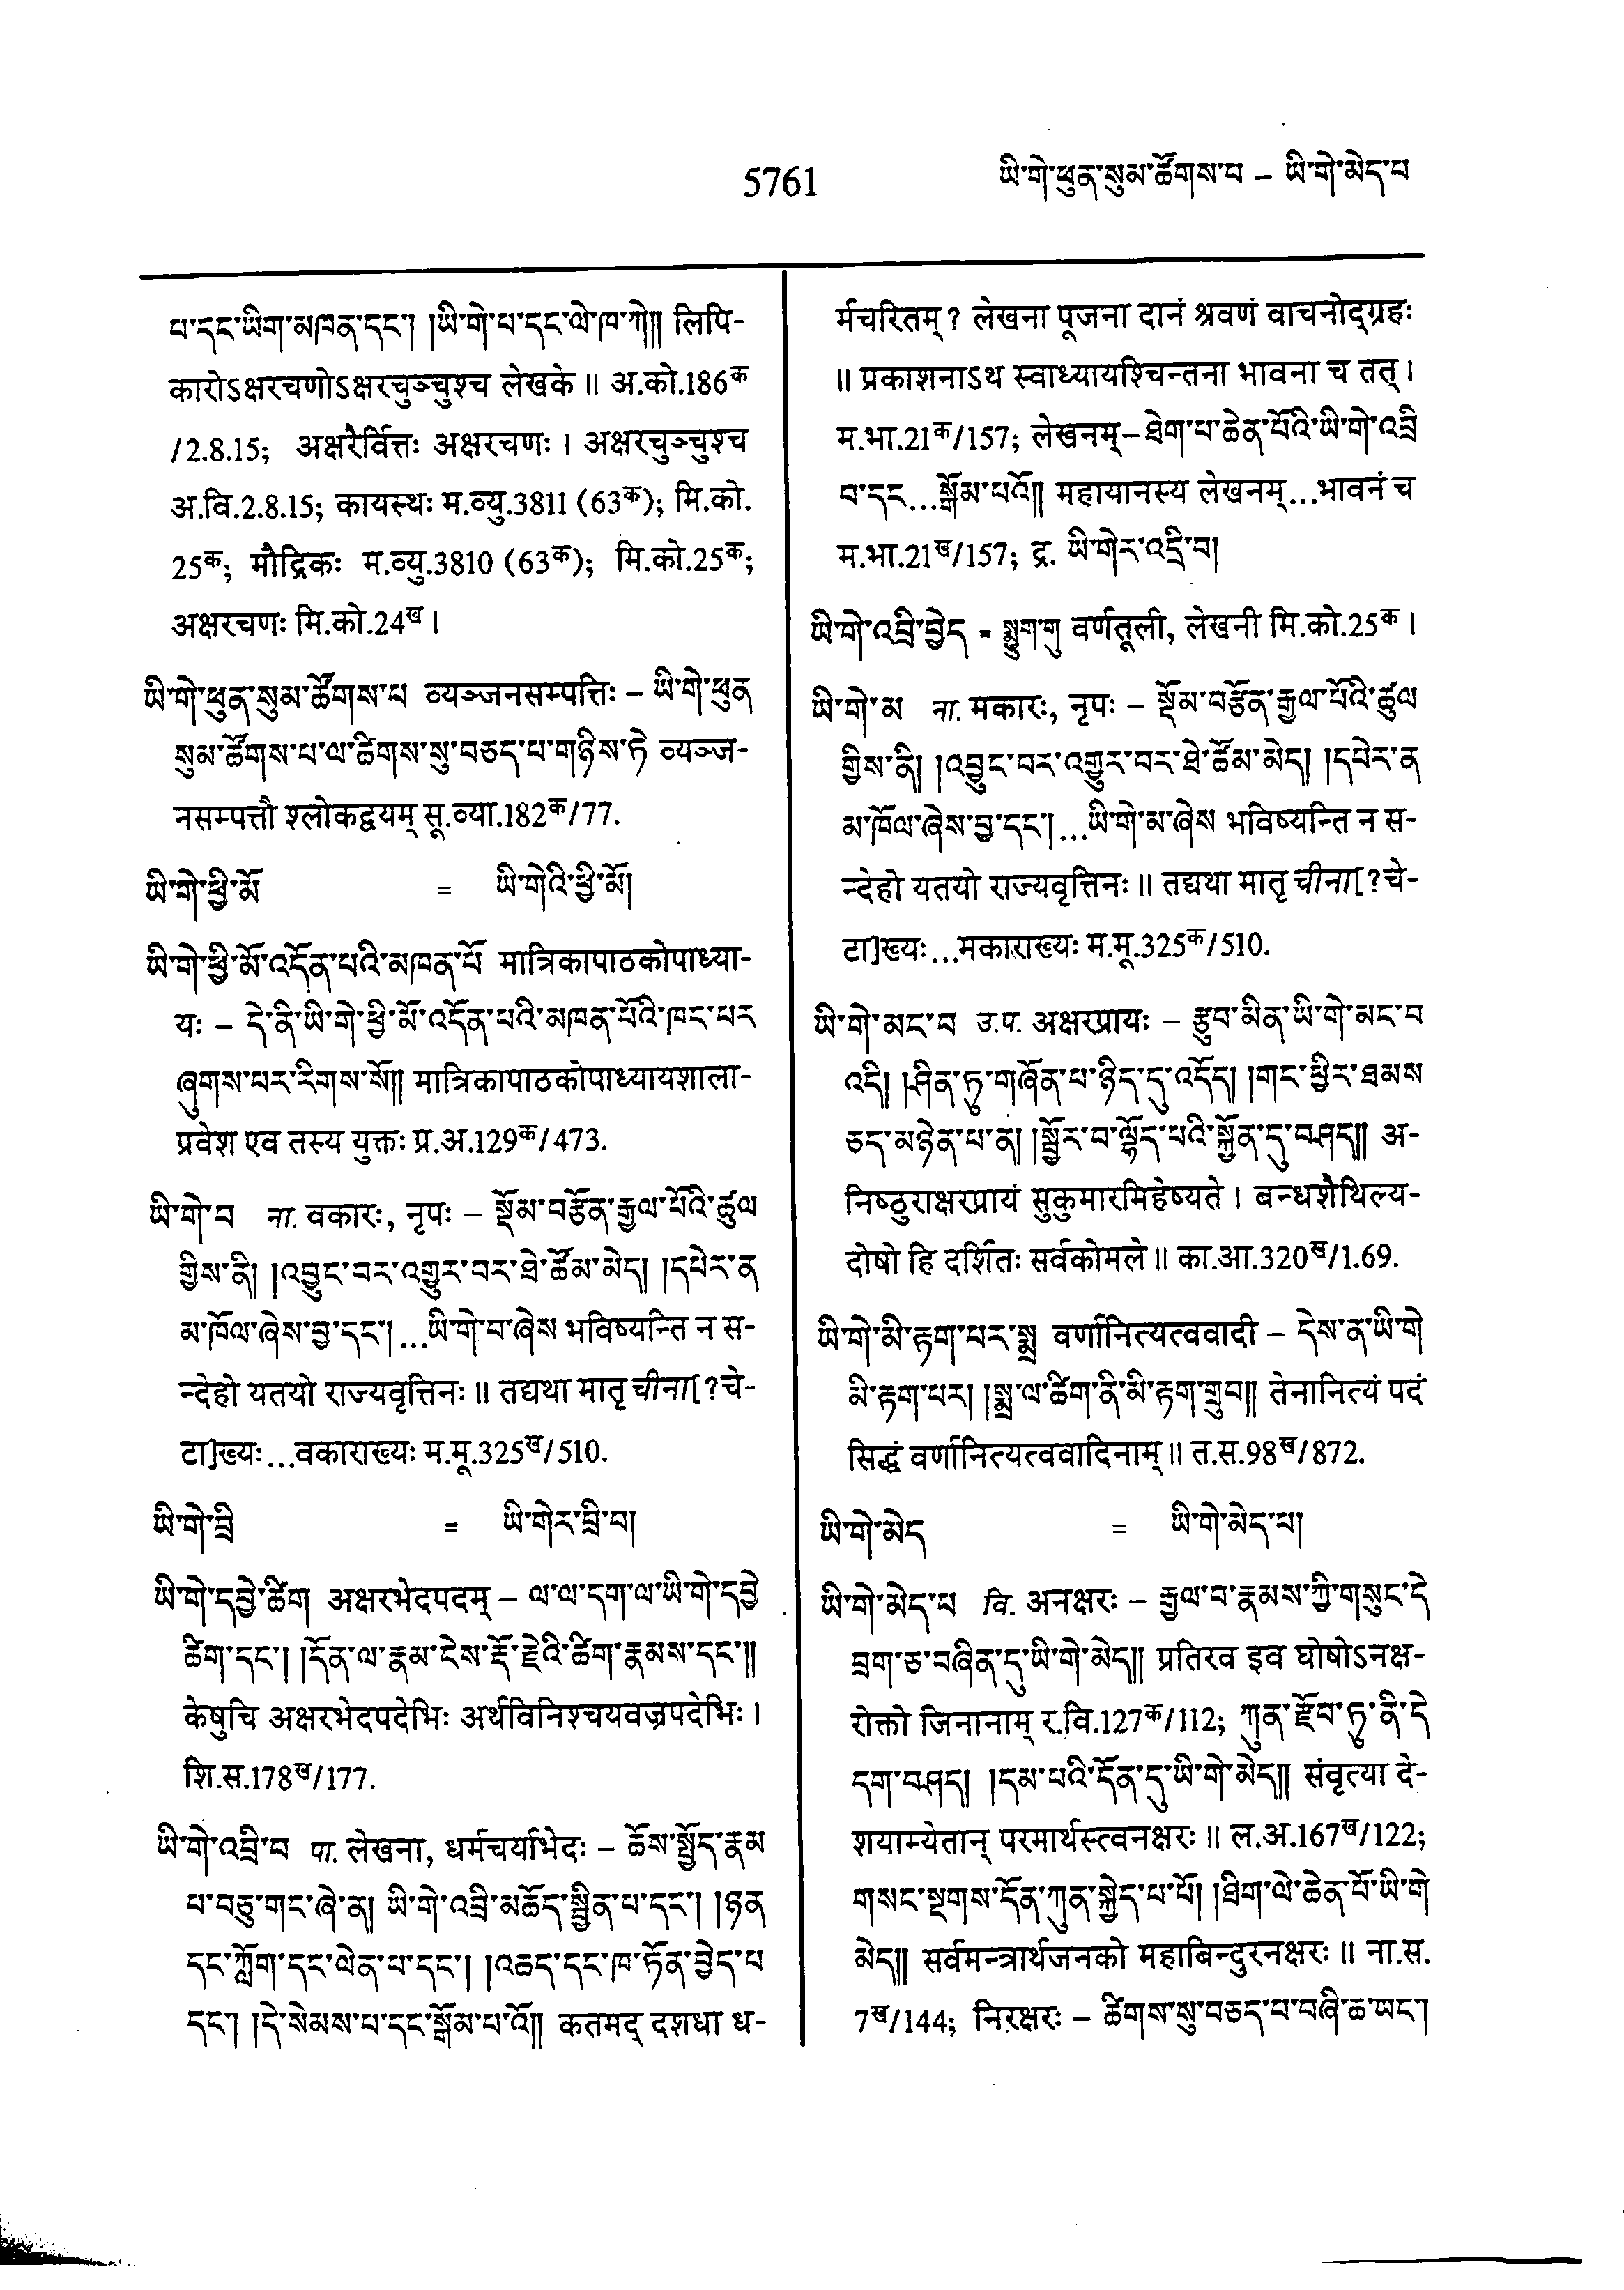 5761
ཡི་གེ་ཕུན་སུམ་ཚོགས་པ – ཡི་གེ་མེད་པ
པ་དང་ཡིག་མཁན་དང་། །ཡི་གེ་པ་དང་ལེ་ཁ་ཀེ།། लिपि-
कारोऽक्षरचणोऽक्षरचुञ्चुश्च लेखके ॥ अ.को.186क
/2.8.15; अक्षरैर्वित्तः अक्षरचणः । अक्षरचुञ्चुश्च
अ.वि.2.8.15; कायस्थः म.व्यु.3811 (63क); मि.को.
25क; मौद्रिकः म.व्यु.3810 (63क); मि.को.25क;
अक्षरचणः मि.को.24ख ।
ཡི་གེ་ཕུན་སུམ་ཚོགས་པ व्यञ्जनसम्पत्तिः – ཡི་གེ་ཕུན
སུམ་ཚོགས་པ་ལ་ཚིགས་སུ་བཅད་པ་གཉིས་ཏེ व्यञ्ज-
नसम्पत्तौ श्लोकद्वयम् सू.व्या.182क/77.
ཡི་གེ་ཕྱི་མོ = ཡི་གེའི་ཕྱི་མོ།
ཡི་གེ་ཕྱི་མོ་འདོན་པའི་མཁན་པོ मात्रिकापाठकोपाध्या-
यः – དེ་ནི་ཡི་གེ་ཕྱི་མོ་འདོན་པའི་མཁན་པོའི་ཁང་པར
ཞུགས་པར་རིགས་སོ།། मात्रिकापाठकोपाध्यायशाला-
प्रवेश एव तस्य युक्तः प्र.अ.129क/473.
ཡི་གེ་བ ना. वकारः, नृपः – སྡོམ་བརྩོན་རྒྱལ་པོའི་ཚུལ
གྱིས་ནི། །འབྱུང་བར་འགྱུར་བར་ཐེ་ཚོམ་མེད། །དཔེར་ན
མ་ཁོལ་ཞེས་བྱ་དང་། ...ཡི་གེ་བ་ཞེས भविष्यन्ति न स-
न्देहो यतयो राज्यवृत्तिनः ॥ तद्यथा मातृ चीना[?चे-
टा]ख्यः...वकाराख्यः म.मू.325ख/510.
ཡི་གེ་བྲི = ཡི་གེར་བྲི་བ།
ཡི་གེ་དབྱེ་ཚིག अक्षरभेदपदम् – ལ་ལ་དག་ལ་ཡི་གེ་དབྱེ
ཚིག་དང་། །དོན་ལ་རྣམ་ངེས་རྡོ་རྗེའི་ཚིག་རྣམས་དང་།།
केषुचि अक्षरभेदपदेभिः अर्थविनिश्चयवज्रपदेभिः ।
शि.स.178ख/177.
ཡི་གེ་འབྲི་བ पा. लेखना, धर्मचर्याभेदः – ཆོས་སྤྱོད་རྣམ
པ་བཅུ་གང་ཞེ་ན། ཡི་གེ་འབྲི་མཆོད་སྦྱིན་པ་དང་། །ཉན
དང་ཀློག་དང་ལེན་པ་དང་། །འཆད་དང་ཁ་ཏོན་བྱེད་པ
དང་། །དེ་སེམས་པ་དང་སྒོམ་པ་འོ།། कतमद् दशधा ध-
र्मचरितम् ? लेखना पूजना दानं श्रवणं वाचनोद्ग्रहः
॥ प्रकाशनाऽथ स्वाध्यायश्चिन्तना भावना च तत् ।
म.भा.21क/157; लेखनम्– ཐེག་པ་ཆེན་པོའི་ཡི་གེ་འབྲི
བ་དང...སྒོམ་པའོ།། महायानस्य लेखनम्...भावनं च
म.भा.21ख/157; द्र. ཡི་གེར་འདྲི་བ།
ཡི་གེ་འབྲི་བྱེད = སྨྱུག་གུ वर्णतूली, लेखनी मि.को.25क ।
ཡི་གེ་མ ना. मकारः, नृपः – སྡོམ་བརྩོན་རྒྱལ་པོའི་ཚུལ
གྱིས་ནི། །འབྱུང་བར་འགྱུར་བར་ཐེ་ཚོམ་མེད། །དཔེར་ན
མ་ཁོལ་ཞེས་བྱ་དང་། ...ཡི་གེ་མ་ཞེས भविष्यन्ति न स-
न्देहो यतयो राज्यवृत्तिनः ॥ तद्यथा मातृ चीना[?चे-
टा]ख्यः...मकाराख्यः म.मू.325क/510.
ཡི་གེ་མང་བ उ.प. अक्षरप्रायः – རྩུབ་མིན་ཡི་གེ་མང་བ
འདི། །ཤིན་ཏུ་གཞོན་པ་ཉིད་དུ་འདོད། །གང་ཕྱིར་ཐམས
ཅད་མཉེན་པ་ན། །སྦྱོར་བ་ལྷོད་པའི་སྐྱོན་དུ་བཤད།། अ-
निष्ठुराक्षरप्रायं सुकुमारमिहेष्यते । बन्धशैथिल्य-
दोषो हि दर्शितः सर्वकोमले ॥ का.आ.320ख/1.69.
ཡི་གེ་མི་རྟག་པར་སྨྲ वर्णानित्यत्ववादी – དེས་ན་ཡི་གེ
མི་རྟག་པར། །སྨྲ་ལ་ཚིག་ནི་མི་རྟག་གྲུབ།། तेनानित्यं पदं
सिद्धं वर्णानित्यत्ववादिनाम् ॥ त.स.98ख/872.
ཡི་གེ་མེད = ཡི་གེ་མེད་པ།
ཡི་གེ་མེད་པ वि. अनक्षरः – རྒྱལ་བ་རྣམས་ཀྱི་གསུང་དེ
བྲག་ཅ་བཞིན་དུ་ཡི་གེ་མེད།། प्रतिरव इव घोषोऽनक्ष-
रोक्तो जिनानाम् र.वि.127क/112; ཀུན་རྫོབ་ཏུ་ནི་དེ
དག་བཤད། །དམ་པའི་དོན་དུ་ཡི་གེ་མེད།། संवृत्या दे-
शयाम्येतान् परमार्थस्त्वनक्षरः ॥ ल.अ.167ख/122;
གསང་སྔགས་དོན་ཀུན་སྐྱེད་པ་པོ། །ཐིག་ལེ་ཆེན་པོ་ཡི་གེ
མེད།། सर्वमन्त्रार्थजनको महाबिन्दुरनक्षरः ॥ ना.स.
7ख/144; निरक्षरः – ཚིགས་སུ་བཅད་པ་བཞི་ཆ་ཡང་།